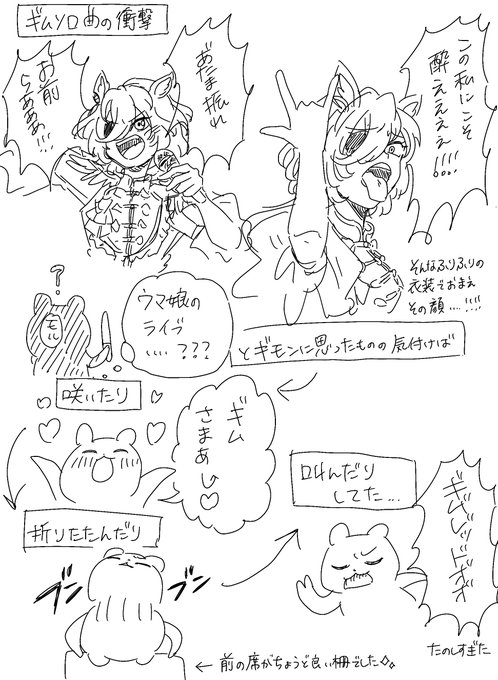 ギムソロ曲の衝撃
この私にこそ
酔えええええ
!!!!
あたま振れ
お前
らあああ!!!
そんなふりふりの
衣装でおまえ
その顔....!!!!
?
モル
ウマ娘の
ライブ
....???
とギモンに思ったものの気付けば
咲いたり
ギム
さまあし♡
折りたたんだり
ブン
ブン
←前の席がちょうど良い柵でした
叫んだり
してた...
ギムレッドボボ
たのしすぎた